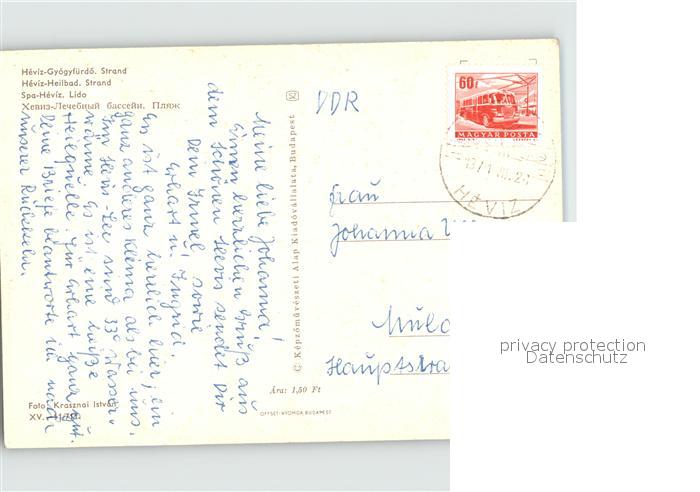 Hévíz-Gyógyfürdő. Strand
Hévíz-Heilbad. Strand
Spa-Hévíz. Lido
Хевиз-Лечебный бассейн. Пляж
Meine liebe Johanna!
Einen herzlichen Gruß aus
dem schönen Hevis sendet Dir
Dein sowie
Erhart u. Ingrid.
Es ist ganz herrlich hier, ein
ganz anderes Klima als bei uns.
Im Heis-See sind 33° Wasser-
wärme. Es ist eine heiße
Heilquelle. Für Erhart ganz gut.
Deine Briefe beantworte ich nach
unserer Rückkehr.
Foto: Krasznai István
XV.
© Képzőművészeti Alap Kiadóvállalata, Budapest
Ára: 1,50 Ft
OFFSET-NYOMDA, BUDAPEST
DDR
60f
MAGYAR POSTA
HÉVÍZ
Frau
Johanna
Hauptstra
privacy protection
Datenschutz